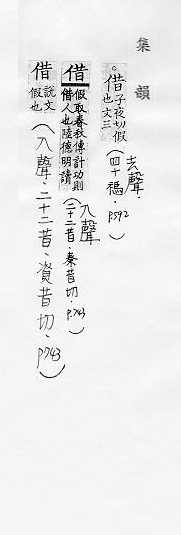 集韻
。借子夜切假也文三
(去聲．四十禡．p592)
借假取春秋傳計功則借人也陸德明讀
(入聲 二十二昔 秦昔切．p.743)
借說文假也
(入聲．二十二昔．資昔切．p743)